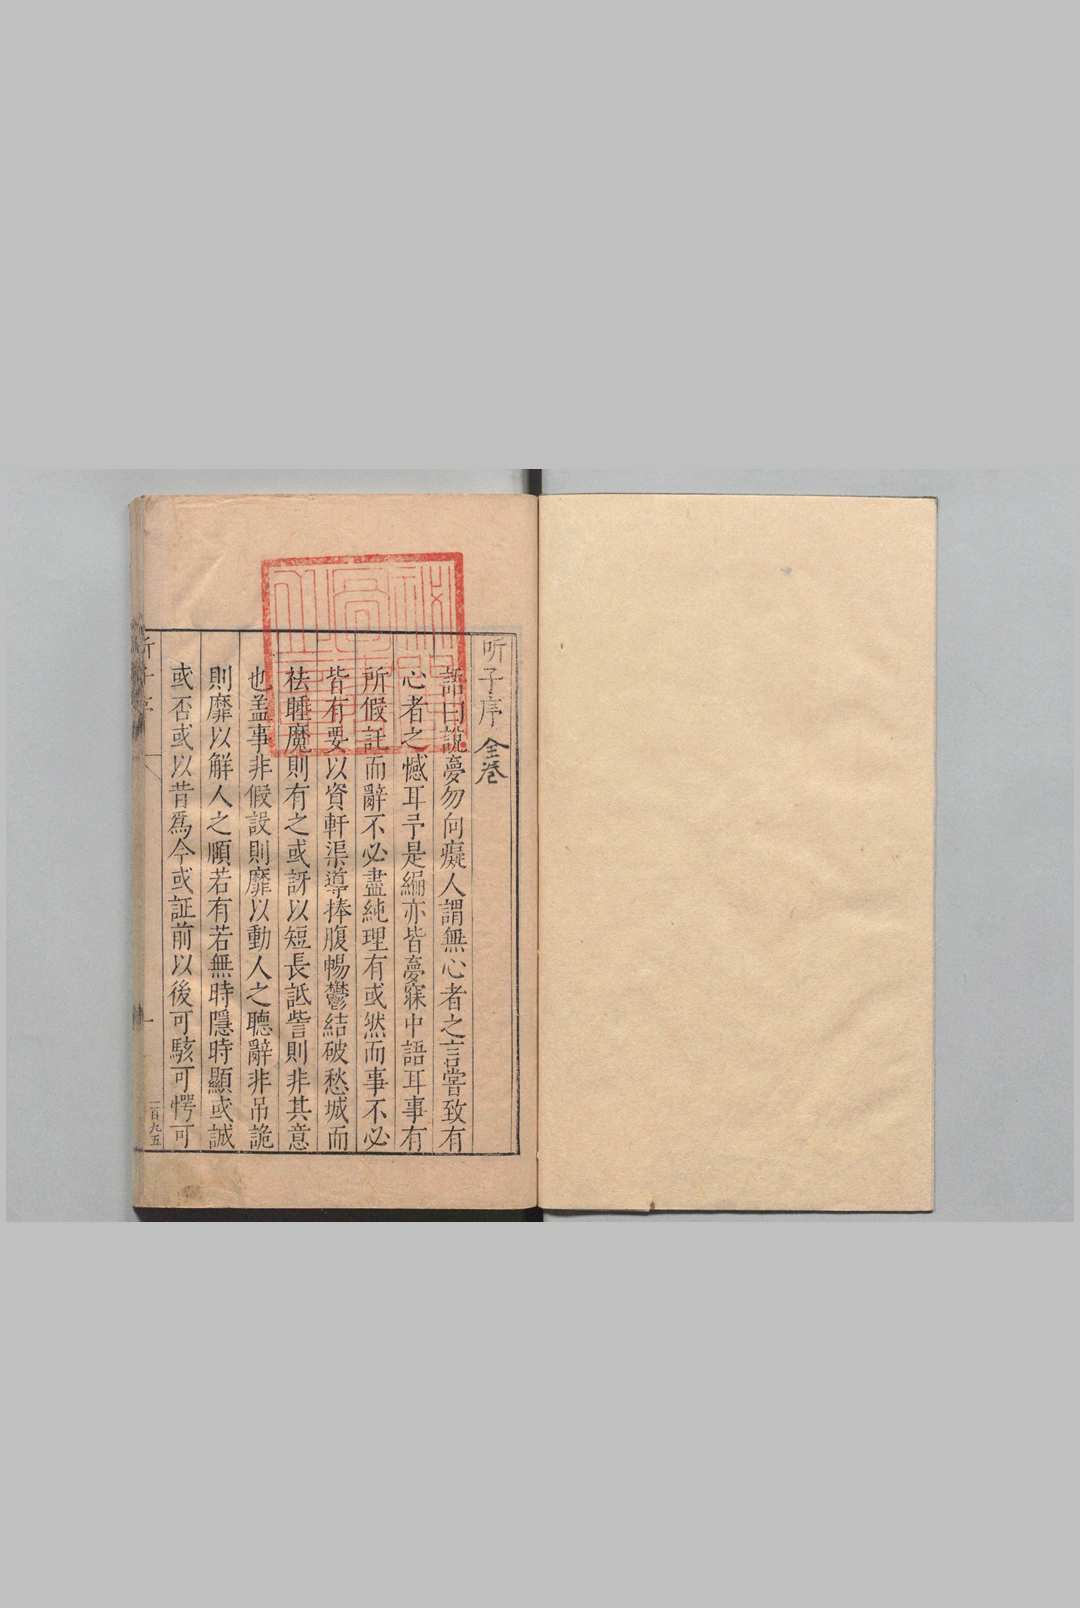 听子序 全卷
語曰說夢勿向癡人謂無心者之言嘗致有
心者之憾耳予是編亦皆夢寐中語耳事有
所假託而辭不必盡純理有或然而事不必
皆有要以資軒渠導捧腹暢鬱結破愁城而
袪睡魔則有之或訝以短長詆訾則非其意
也盖事非假設則靡以動人之聽辭非吊詭
則靡以解人之頤若有若無時隱時顯或誠
或否或以昔爲今或証前以後可駭可愕可
听子序 一 二百九五